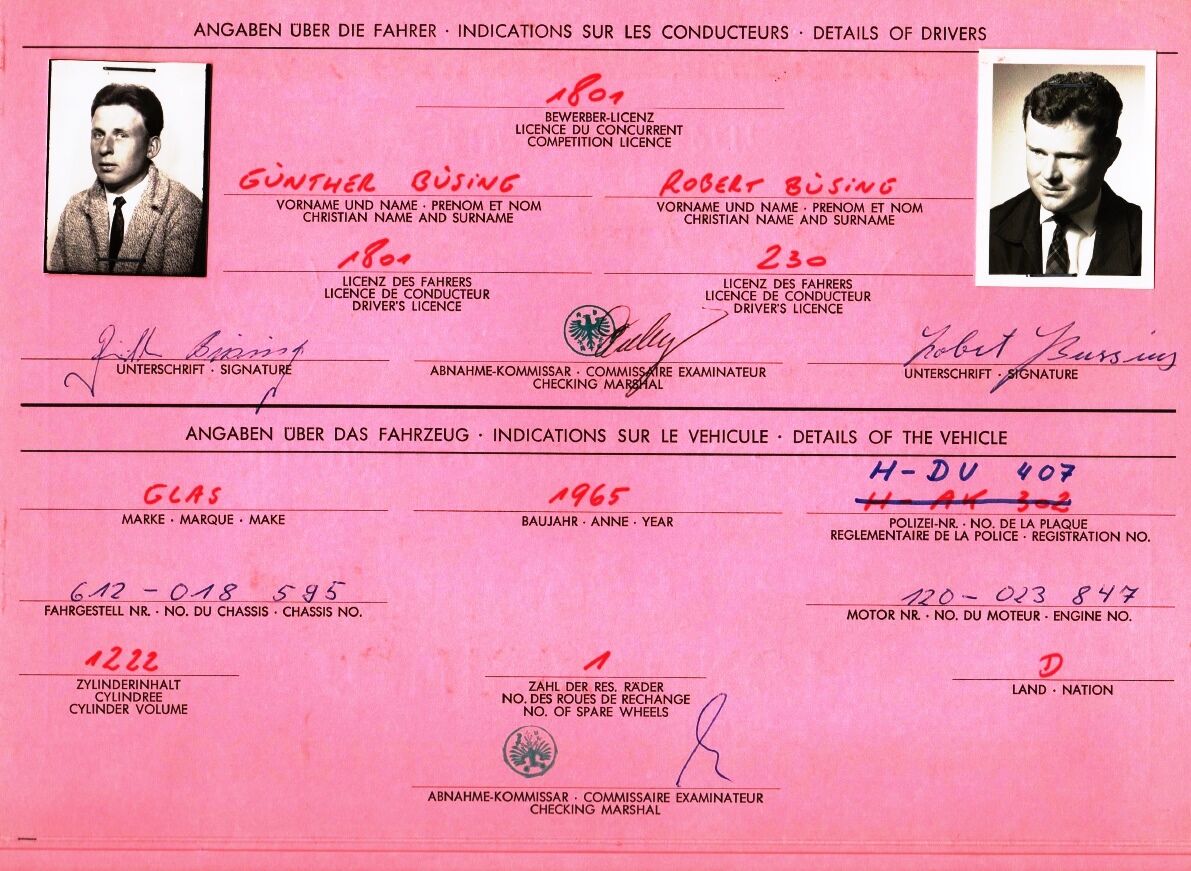 ANGABEN ÜBER DIE FAHRER · INDICATIONS SUR LES CONDUCTEURS · DETAILS OF DRIVERS
1801
BEWERBER-LICENZ
LICENCE DU CONCURRENT
COMPETITION LICENCE
GÜNTHER BÜSING
VORNAME UND NAME · PRENOM ET NOM
CHRISTIAN NAME AND SURNAME
ROBERT BÜSING
VORNAME UND NAME · PRENOM ET NOM
CHRISTIAN NAME AND SURNAME
1801
LICENZ DES FAHRERS
LICENCE DE CONDUCTEUR
DRIVER'S LICENCE
230
LICENZ DES FAHRERS
LICENCE DE CONDUCTEUR
DRIVER'S LICENCE
UNTERSCHRIFT · SIGNATURE
ABNAHME-KOMMISSAR · COMMISSAIRE EXAMINATEUR
CHECKING MARSHAL
Robert Bussing
UNTERSCHRIFT · SIGNATURE
ANGABEN ÜBER DAS FAHRZEUG · INDICATIONS SUR LE VEHICULE · DETAILS OF THE VEHICLE
GLAS
MARKE · MARQUE · MAKE
1965
BAUJAHR · ANNE · YEAR
H-DU 407
H-AK 302
POLIZEI-NR. · NO. DE LA PLAQUE
REGLEMENTAIRE DE LA POLICE · REGISTRATION NO.
612-018 595
FAHRGESTELL NR. · NO. DU CHASSIS · CHASSIS NO.
120-023 847
MOTOR NR. · NO. DU MOTEUR · ENGINE NO.
1222
ZYLINDERINHALT
CYLINDREE
CYLINDER VOLUME
1
ZAHL DER RES. RÄDER
NO. DES ROUES DE RECHANGE
NO. OF SPARE WHEELS
D
LAND · NATION
ABNAHME-KOMMISSAR · COMMISSAIRE EXAMINATEUR
CHECKING MARSHAL